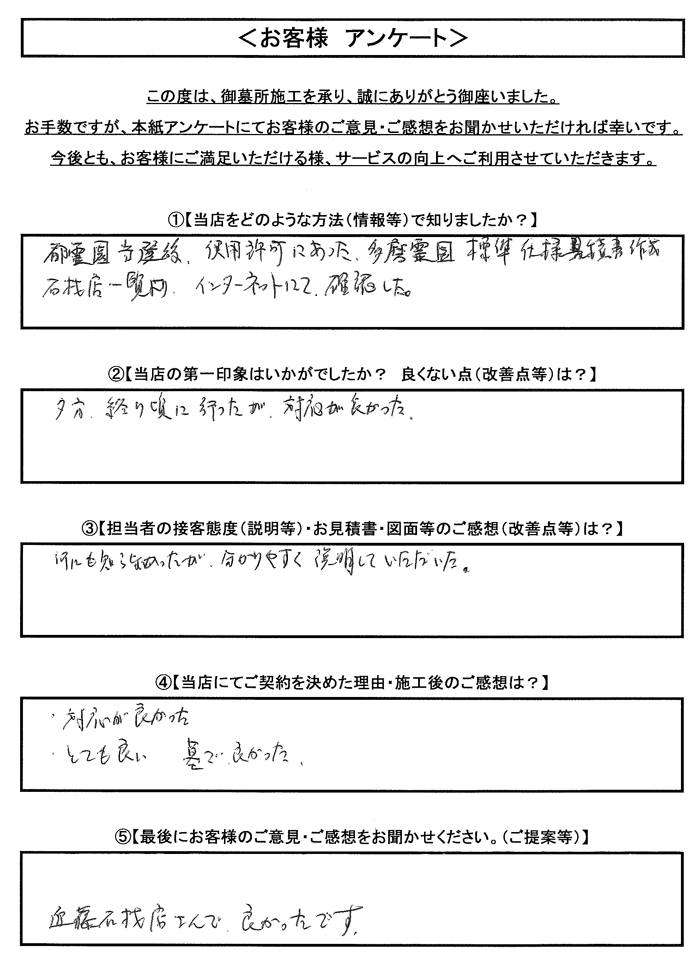 ＜お客様 アンケート＞
この度は、御墓所施工を承り、誠にありがとう御座いました。
お手数ですが、本紙アンケートにてお客様のご意見・ご感想をお聞かせいただければ幸いです。
今後とも、お客様にご満足いただける様、サービスの向上へご利用させていただきます。
①【当店をどのような方法（情報等）で知りましたか？】
都霊園当選後、使用許可にあった、多磨霊園 標準仕様見積書作成
石材店一覧内、インターネットにて、確認した。
②【当店の第一印象はいかがでしたか？ 良くない点（改善点等）は？】
夕方、終り頃に行ったが、対応が良かった。
③【担当者の接客態度（説明等）・お見積書・図面等のご感想（改善点等）は？】
何にも知らなかったが、分かりやすく説明していただいた。
④【当店にてご契約を決めた理由・施工後のご感想は？】
・対応が良かった
・とても良い 墓で良かった。
⑤【最後にお客様のご意見・ご感想をお聞かせください。（ご提案等）】
近藤石材店さんで、良かったです。